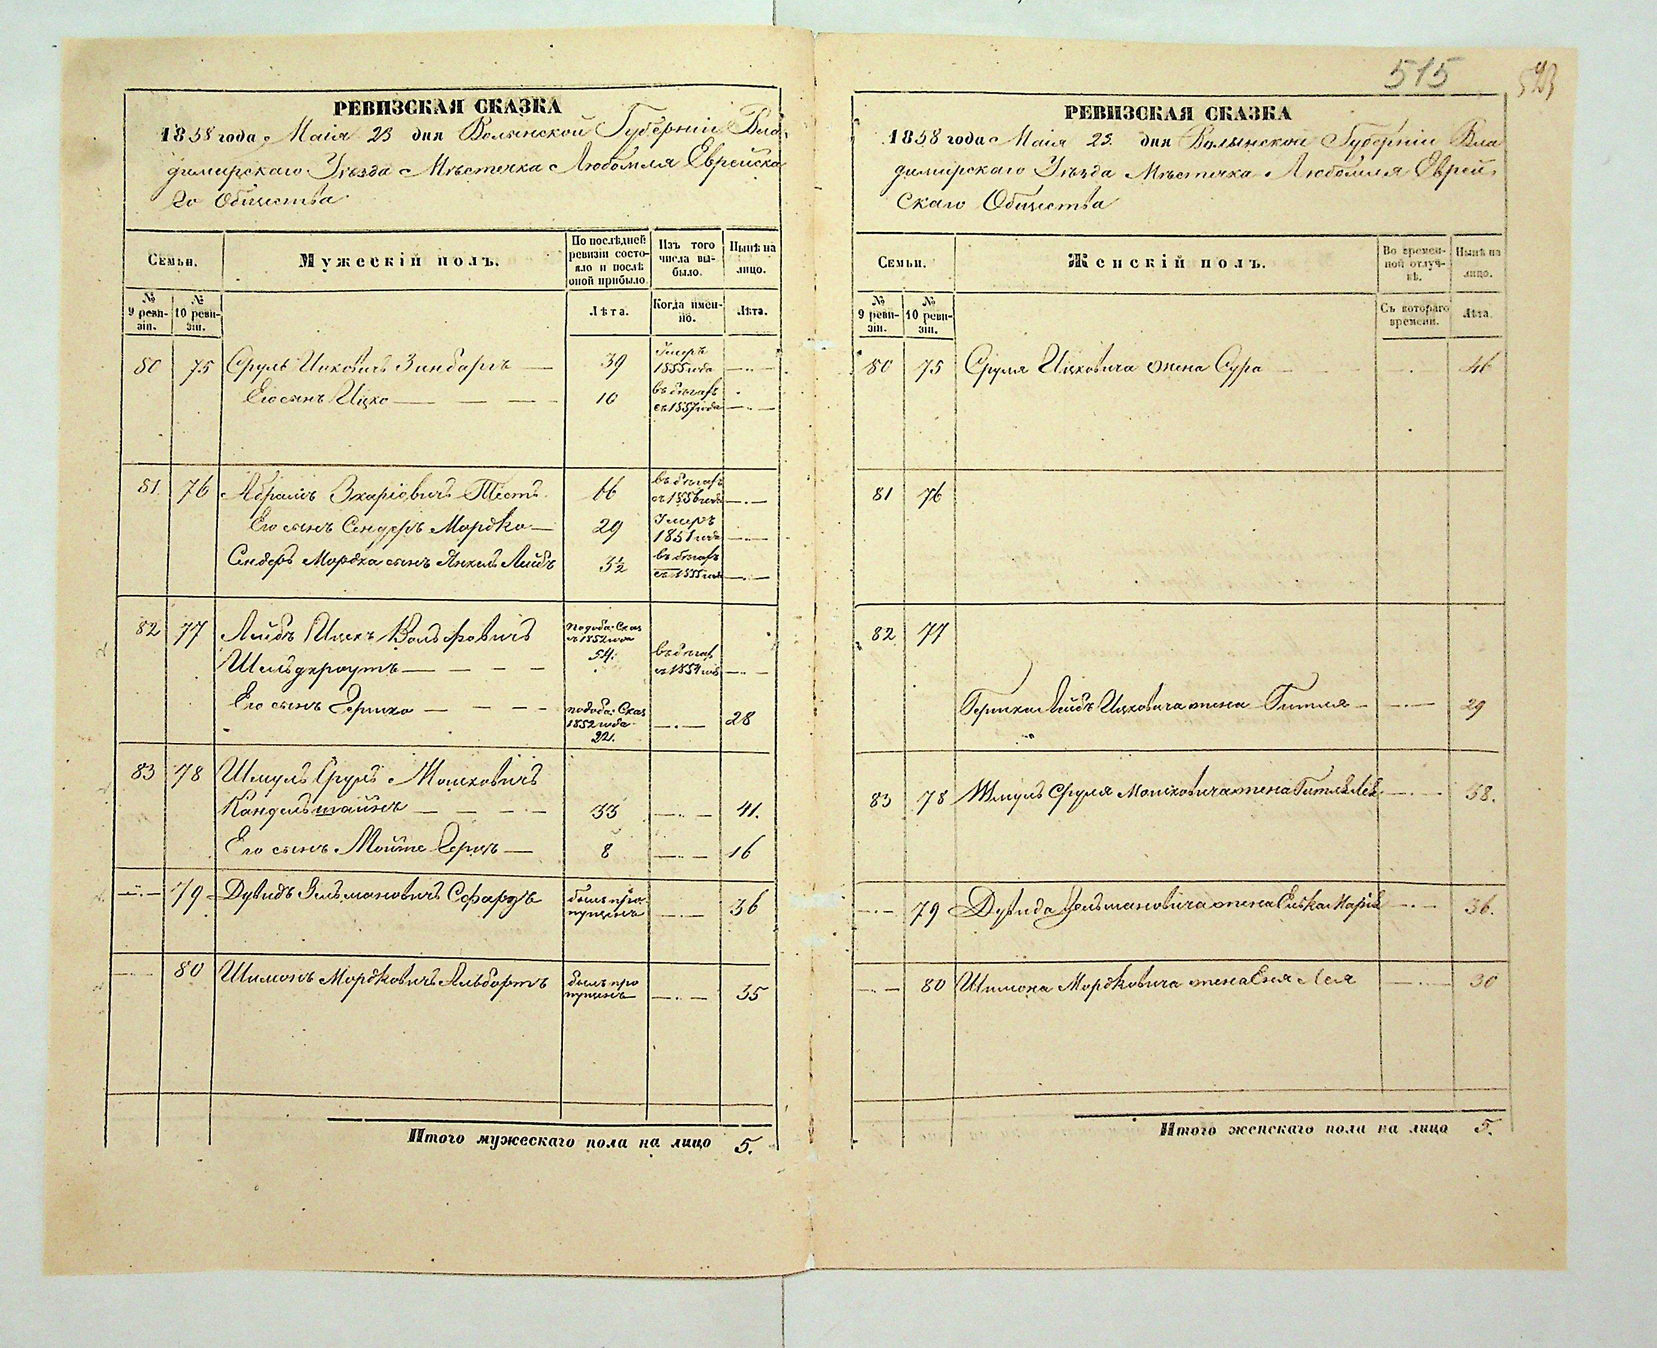 515
РЕВИЗСКАЯ СКАЗКА
1858 года Маія 23 дня Волынской Губерніи Вла
димирскаго Уѣзда Мѣстечка Любомля Еврейска
го Общества
Семьи.
Мужескій полъ.
По послѣдней ревизіи состояло и послѣ оной прибыло.
Изъ того числа выбыло.
Нынѣ на лицо.
№ 9 ревизіи.
№ 10 ревизіи.
Лѣта.
Когда именно.
Лѣта.
80 75 Сруль Ицковичъ Зинбаргъ 39 Умеръ 1855 года
Его сынъ Ицко 16 въ бѣгахъ съ 1857 года
81 76 Абрамъ Зкаріовичъ Тестъ 66 въ бѣгахъ съ 1856 года
Его сынъ Сендеръ Мордко 29 Умеръ 1851 года
Сендеръ Мордка сынъ Янкель Лейбъ 3½ въ бѣгахъ съ 1855 года
82 77 Лейбъ Ицекъ Вольфовичъ по доба: Сказ 1852 года
Шильдкроутъ 54. въ бѣгах съ 1854 год
Его сынъ Гершко по доба: Сказ 1852 года 22. 28
83 78 Шмуль Сруль Мошковичъ
Кандельштайнъ 33 41.
Его сынъ Мойше Герсъ 8 16
79 Дувидъ Зельмановичъ Сфардъ былъ пропущенъ 36
80 Шимонъ Мордковичъ Альбортъ былъ пропущенъ 35
Итого мужескаго пола на лицо 5.
РЕВИЗСКАЯ СКАЗКА
1858 года Маія 23. дня Волынской Губерніи Вла
димирскаго Уѣзда Мѣстечка Любомля Еврей
скаго Общества
Семьи.
Женскій полъ.
Во временной отлучкѣ.
Нынѣ на лицо.
№ 9 ревизіи.
№ 10 ревизіи.
Съ котораго времени.
Лѣта.
80 75 Сруля Ицковича жена Сура 46
81 76
82 77
Гершка Лейбъ Ицковича жена Гитля 29
83 78 Шмуль Сруля Мошковича жена Гитля Лея 38.
79 Дувида Зельмановича жена Елька Марія 36.
80 Шимона Мордковича жена Еня Лея 30
Итого женскаго пола на лицо 5.